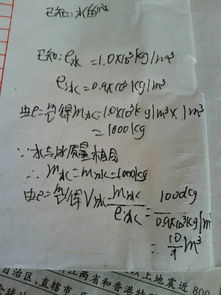 已知:水的
已知:ρ水=1.0×10³kg/m³
ρ冰=0.9×10³kg/m³
由ρ=m/V得m水=1.0×10³kg/m³×1m³
=1000kg
∵水与冰质量相同
∴m冰=m水=1000kg
由ρ=m/V得V冰=m冰/ρ冰=1000kg/0.9×10³kg/m
=10/9m³
自治区、直辖市
江两省和香港特
以上地震近800